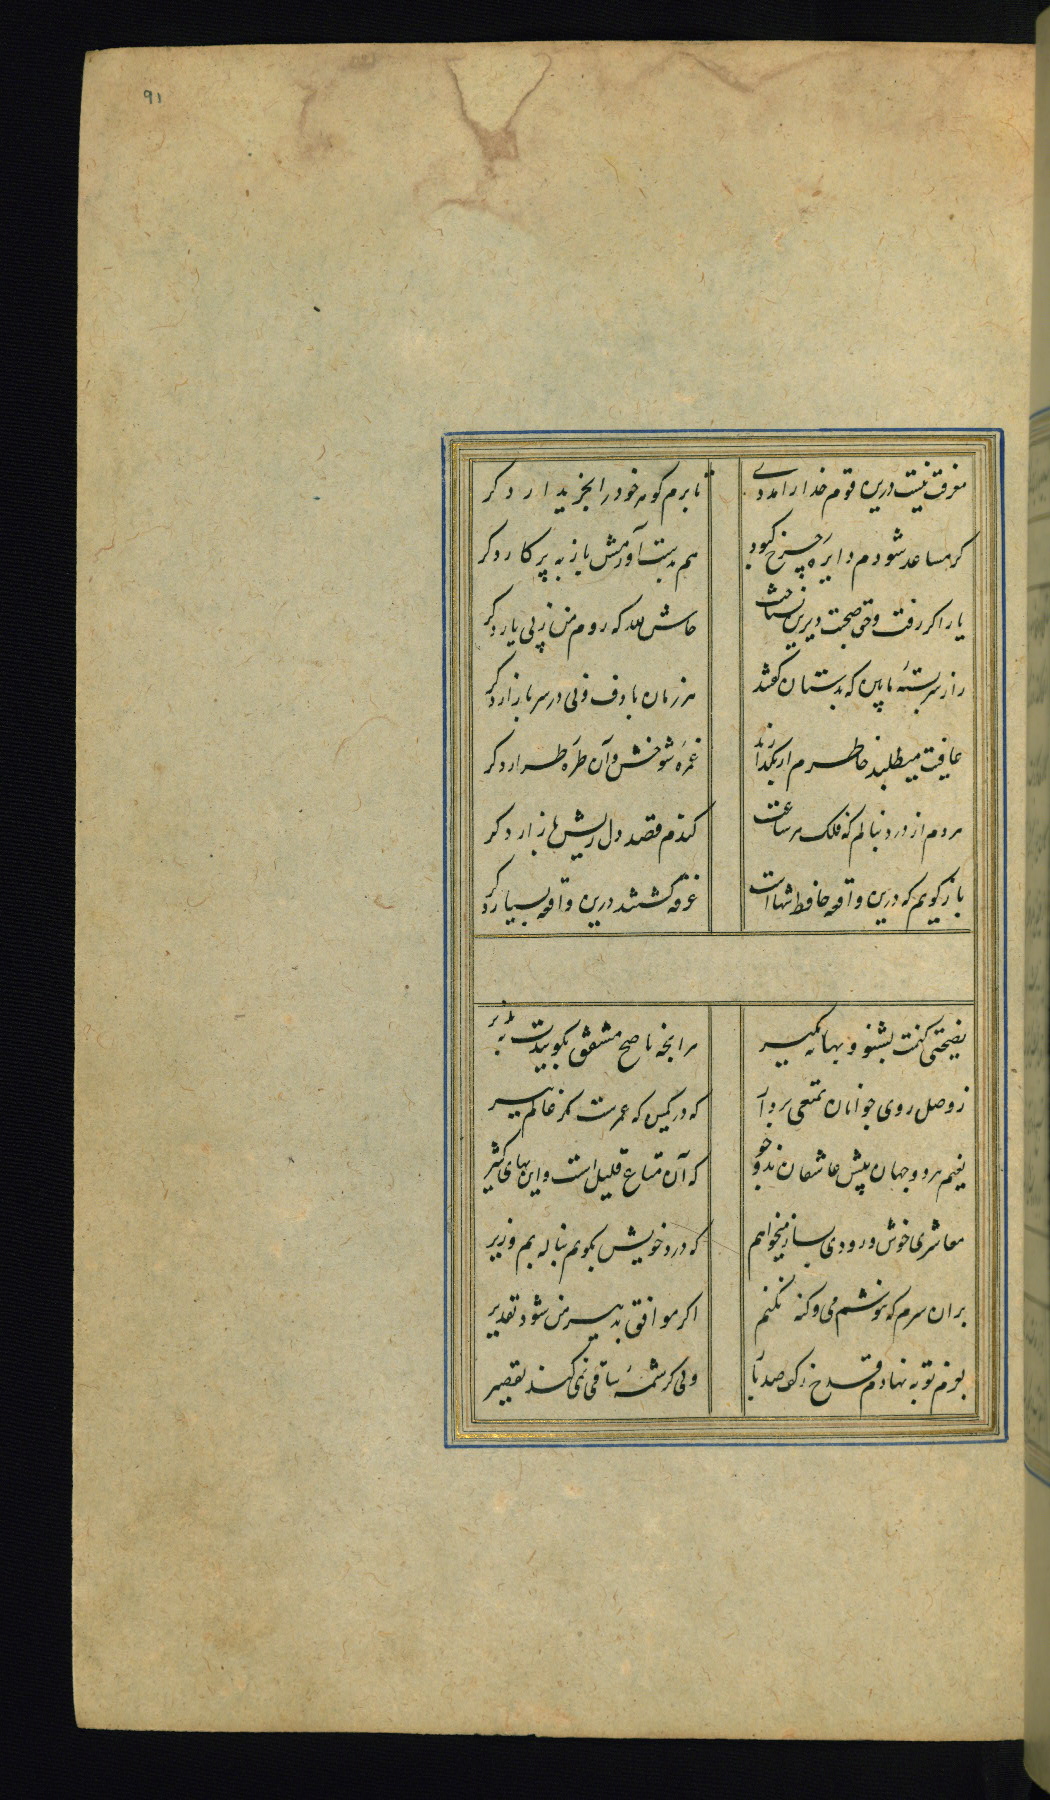 ۹۱
معرفت نیست درین قوم خدا را مددی تا برم کوهر خود را بخریدار دکر
کر مساعد شودم دایره چرخ کبود هم بدست آورمش باز به پرکار دکر
یار اکر رفت و حق صحبت دیرین نشناخت حاش لله که روم من ز پی یار دکر
راز سربسته ما بین که بدستان کفتند هر زمان با دف و نی در سر بازار دکر
عافیت میطلبد خاطرم ار بکذارند غمزه شوخش و آن طره طرار دکر
هر دم از درد بنالم که فلک هر ساعت کندم قصد دل ریش بازار دکر
باز کویم که درین واقعه حافظ تنهاست غرقه کشتند درین واقعه بسیار دکر
نصیحتی کنمت بشنو و بهانه مکیر هر آنچه ناصح مشفق بکویدت بپذیر
ز وصل روی جوانان تمتعی بردار که در کمین که عمرست مکر عالم پیر
نعیم هر دو جهان پیش عاشقان بدو جو که آن متاع قلیل است و این بهای کثیر
معاشری خوش و رودی بساز میخواهم که درد خویش بکویم بناله بم و زیر
بران سرم که ننوشم می و کنه نکنم اکر موافق تدبیر من شود تقدیر
بعزم توبه نهادم قدح ز کف صد بار ولی کرشمه ساقی نمی کند تقصیر